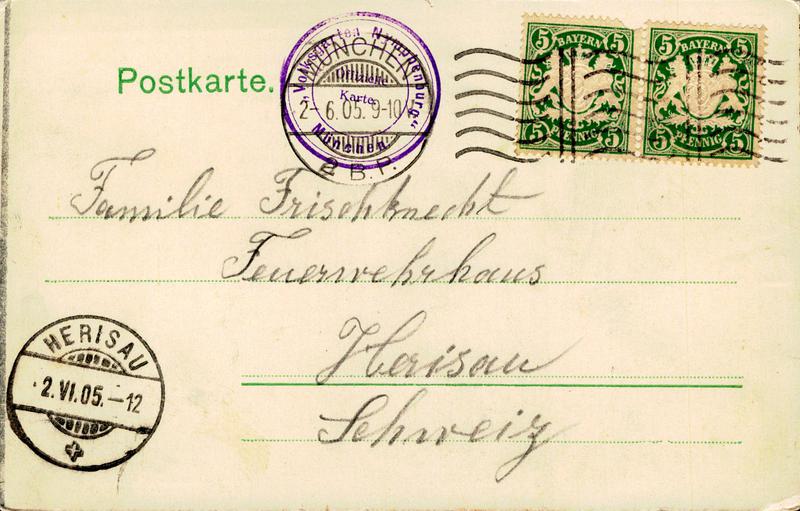 Postkarte.
"Volksgarten Nymphenburg"
Offizielle
Karte.
München.
MÜNCHEN
2-6.05. 9-10
2 B.P.
5 BAYERN 5
5 PFENNIG 5
5 BAYERN 5
5 PFENNIG 5
Familie Frischknecht
Feuerwehrhaus
Herisau
Schweiz
HERISAU
2.VI.05.-12